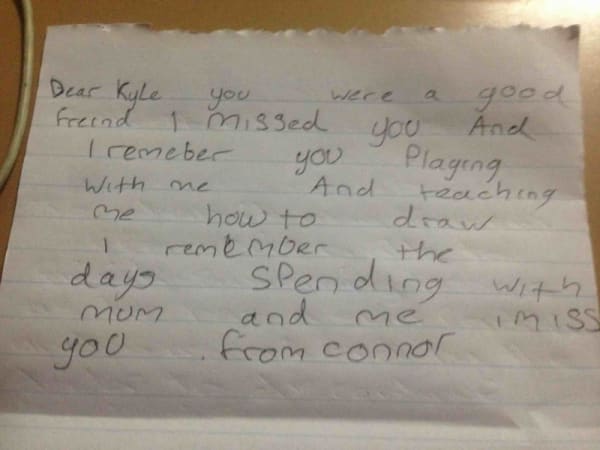 Dear Kyle you were a good
freind I missed you And
I remeber you Playing
with me And teaching
me how to draw
I remember the
days Spending with
mum and me i miss
you . from connor